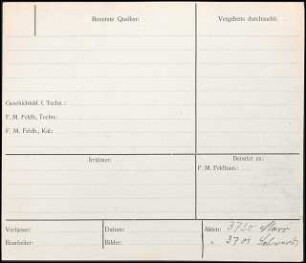 Benutzte Quellen:
Vergebens durchsucht:
Geschichtsbl. f. Techn.:
F. M. Feldh., Techn.:
F. M. Feldh., Kal.:
Irrtümer:
Benutzt zu:
F. M. Feldhaus:
Verfasser:
Datum:
Akten: 3750
Bearbeiter:
Bilder:
" 3701